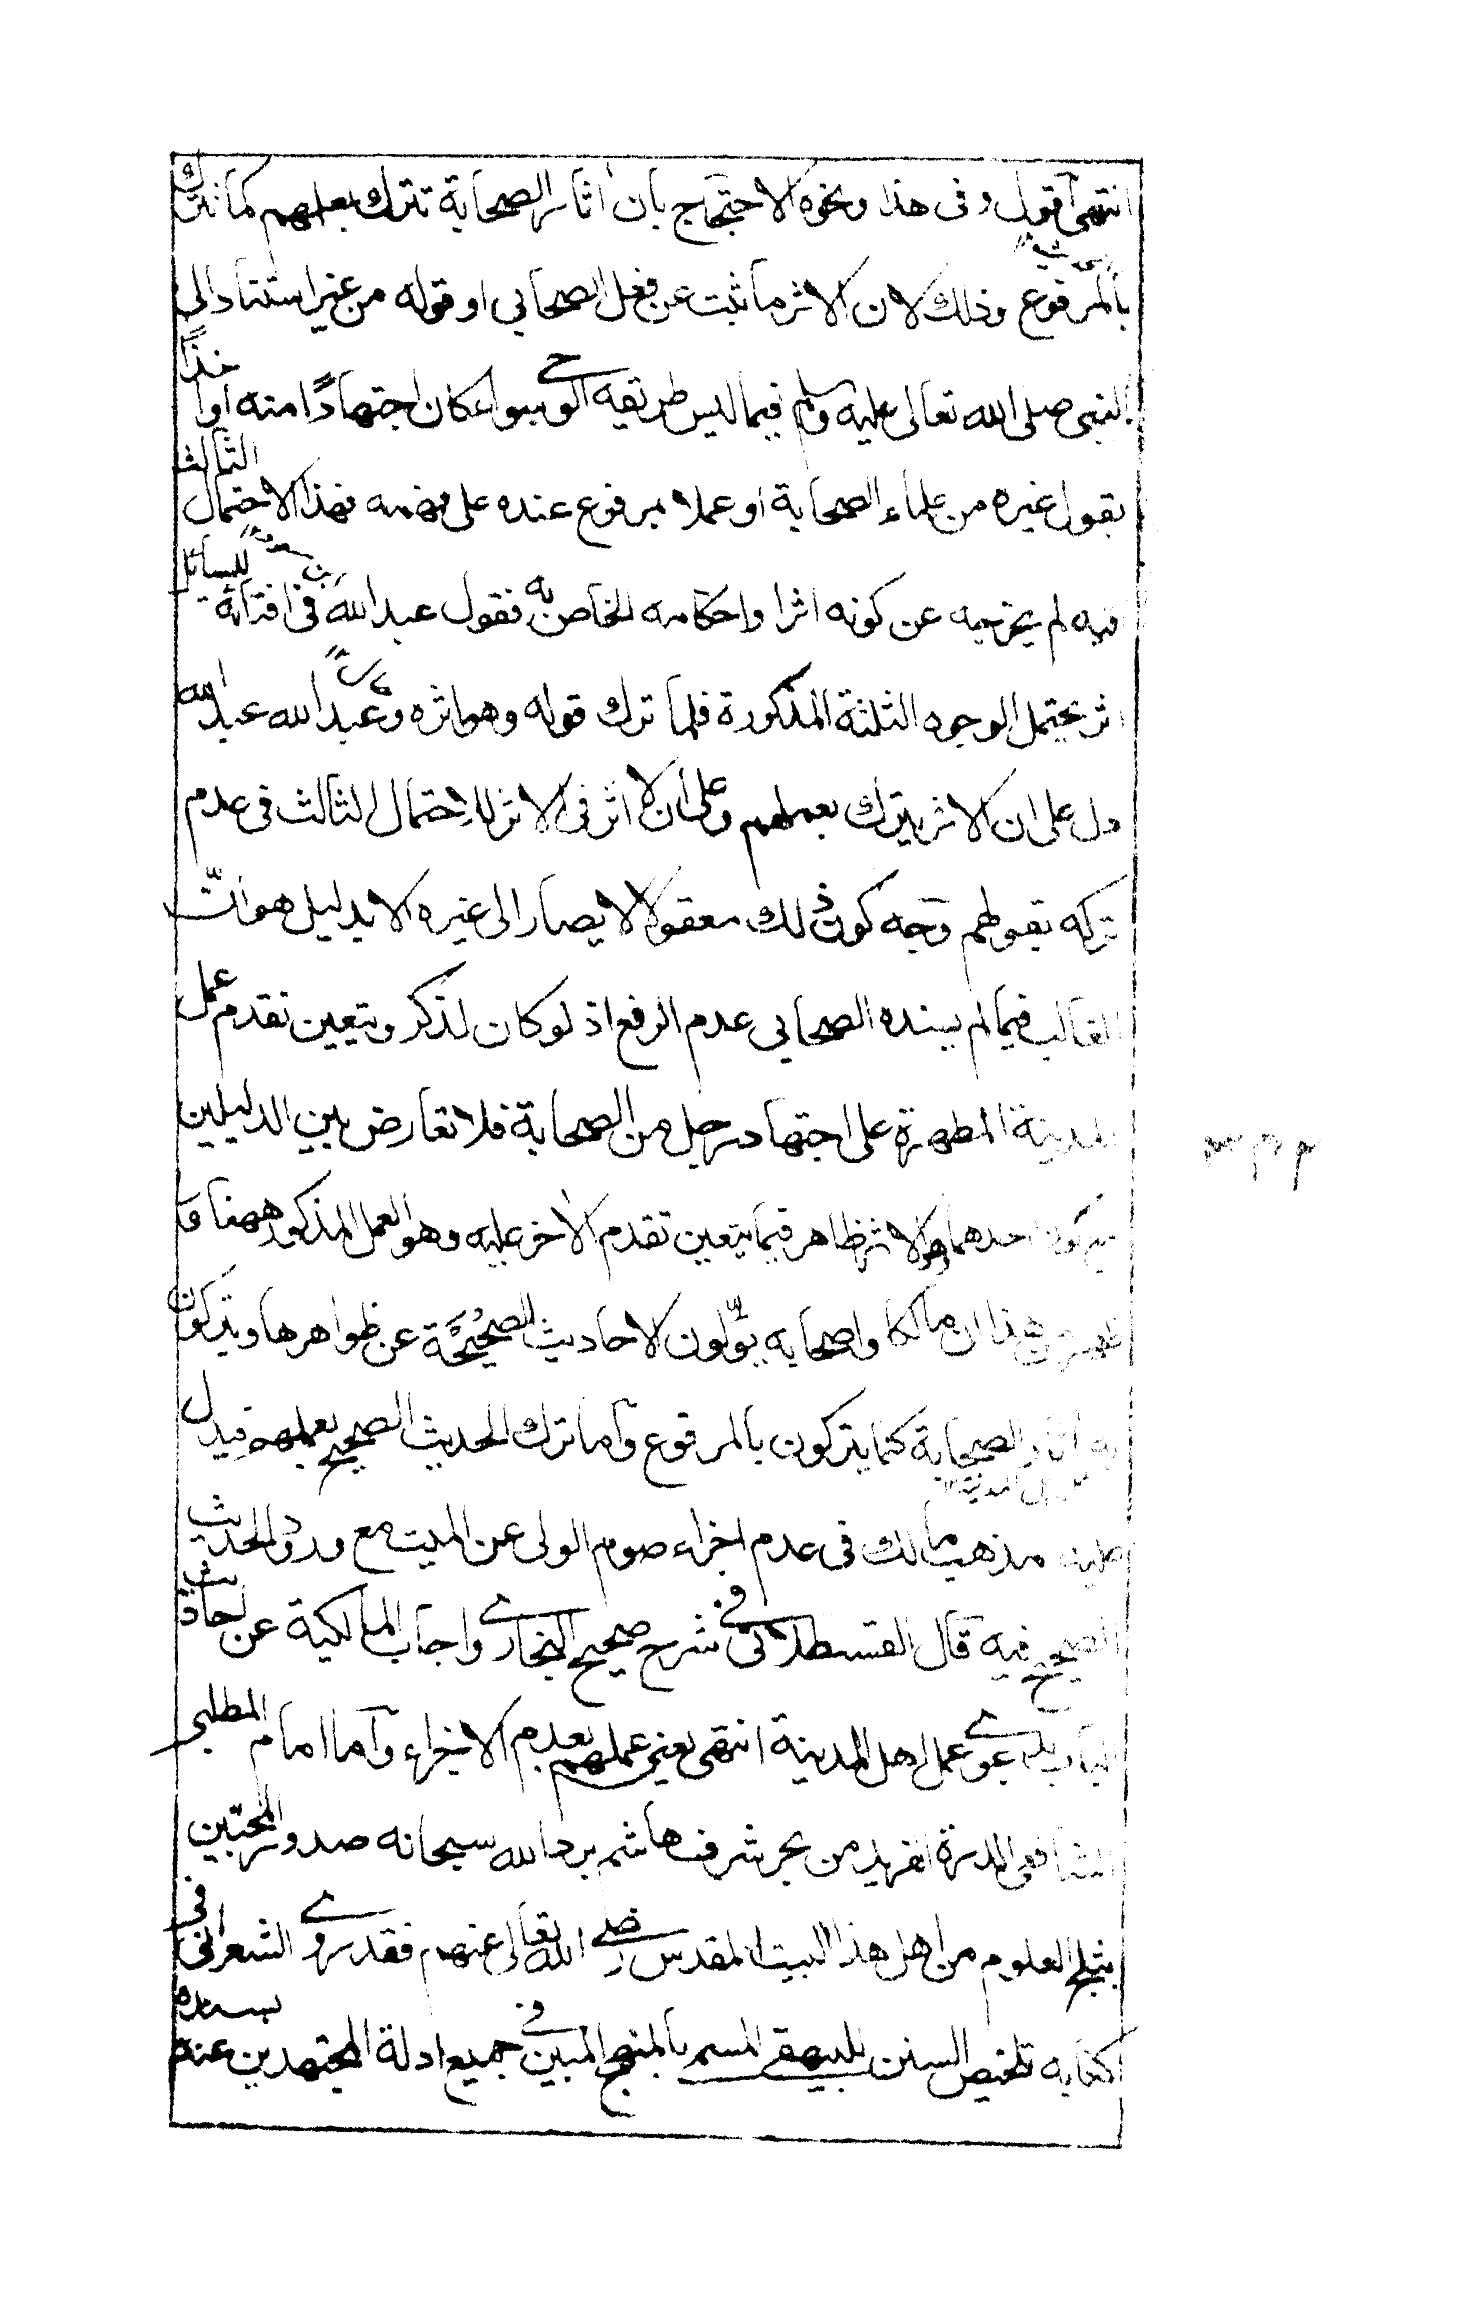 انتهى أقول وفى هذا ونحوه الاحتجاج بان اثار الصحابة تترك بعملهم كما تترك
بالمرفوع وذلك لان الاثر ما ثبت عن فعل الصحابي او قوله من غير استناد الى
النبى صلى الله تعالى عليه وسلم فيما ليس طريقه الوحى سواء كان اجتهادًا منه او اخذًا
بقول غيره من علماء الصحابة او عملا بمرفوع عنده على فهمه فهذا الاحتمال الثالث
فيه لم يخرجه عن كونه اثرا واحكامه الخاص به فقول عبد الله فى افتائه للسائل
اثر يحتمل الوجوه الثلثة المذكورة فلما ترك قوله وهو اثره وعبد الله عبد الله
دل على ان الاثر يترك بعملهم وعلى ان لا اثر فى الاثر للاحتمال الثالث فى عدم
تركه بقولهم وجه كون ذلك معقولا لا يصار الى غيره الا بدليل هو انّ
الغالب فيما لم يسنده الصحابي عدم الرفع اذ لو كان لذكر ويتعين تقدم عمل
المدينة المطهرة على اجتهاد رجل من الصحابة فلا تعارض بين الدليلين
مع كون احدهما وهو الاثر ظاهر فيما يتعين تقدم الاخر عليه وهو العمل المذكور ههنا و
ظهر من هذا ان مالكا واصحابه يؤّلون الاحاديث الصحيحة عن ظواهرها ويتركون
به اثار الصحابة كما يتركون بالمرفوع وأما ترك الحديث الصحيح بعملهم فيدل
عليه مذهب مالك فى عدم اجزاء صوم الولى عن الميت مع ورود الحديث
الصحيح فيه قال القسطلانى فى شرح صحيح البخارى واجاب المالكية عن احاديث
الباب بدعوى عمل اهل المدينة انتهى يعنى عملهم بعدم الاجزاء وأما امام المطلبى
الشافعى الدرة الفريد من بحر شرف هاشم برد الله سبحانه صدور المحبّين
بثلج العلوم من اهل هذا البيت المقدس رضى الله تعالى عنهم فقد روى الشعرانى فى
كتابه تلخيص السنن للبيهقى المسمى بالمنهج المبين فى جميع ادلة المجتهدين عنه بسنده